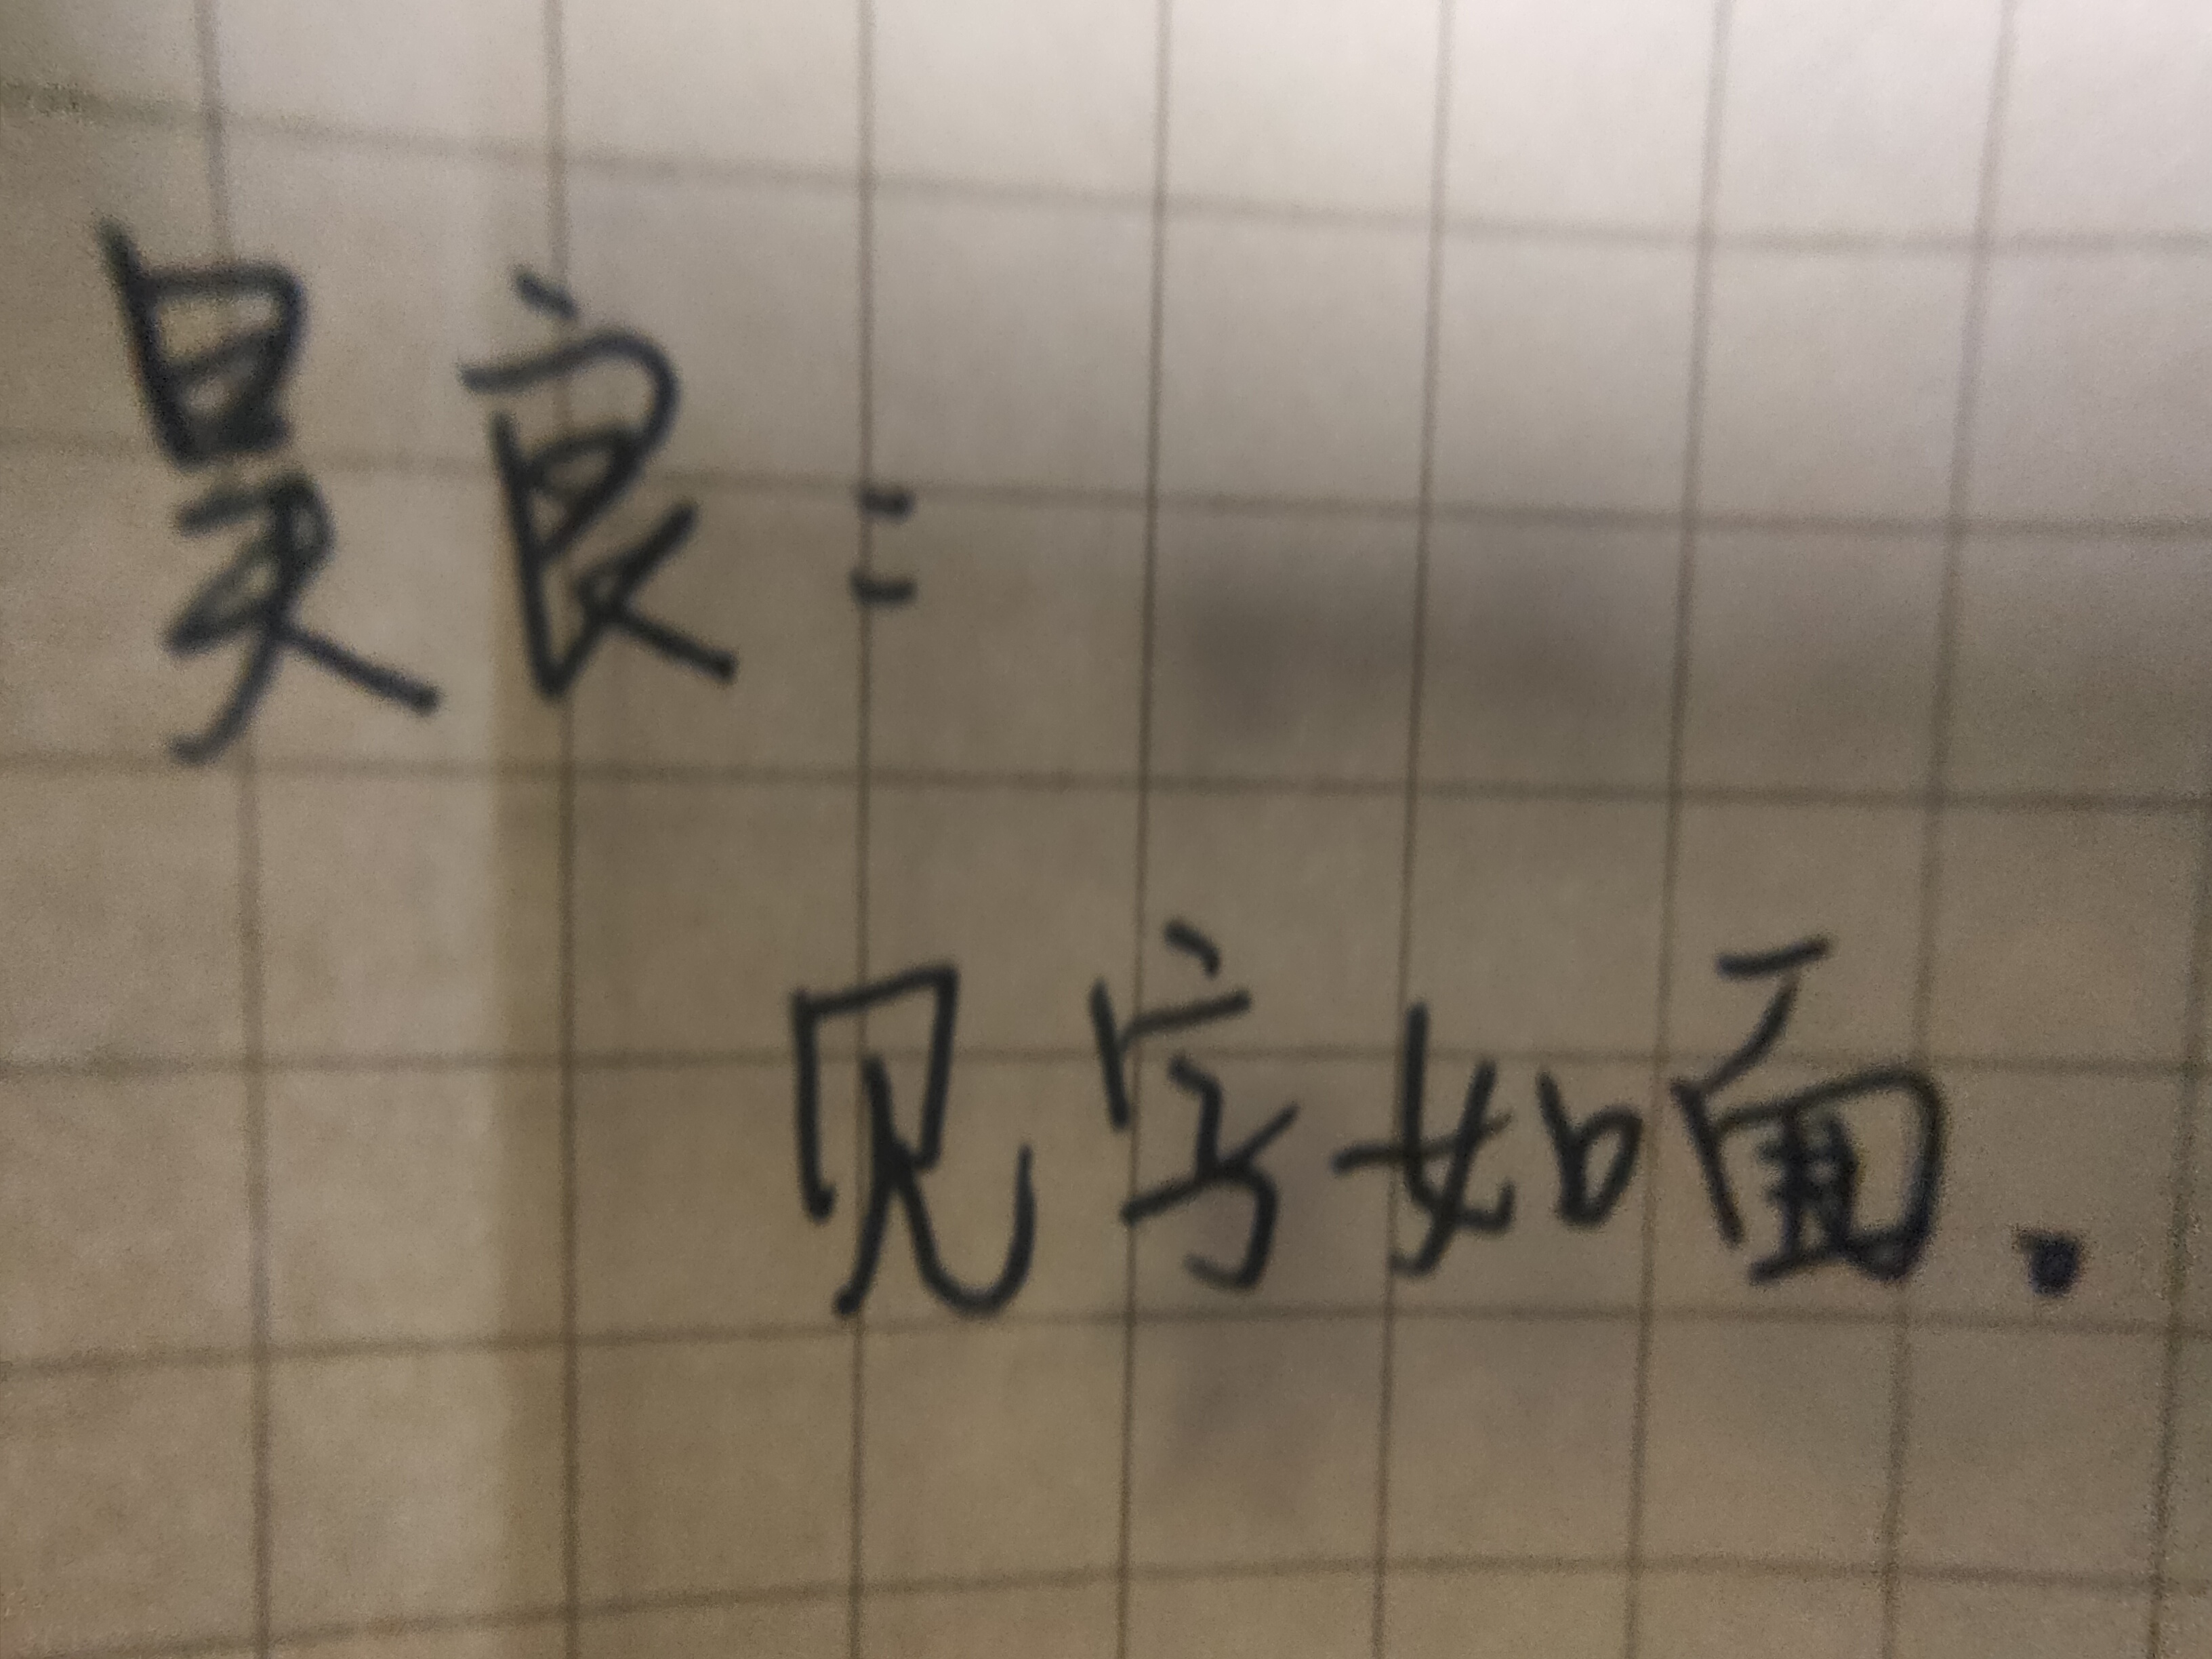 昊良：
见字如面.